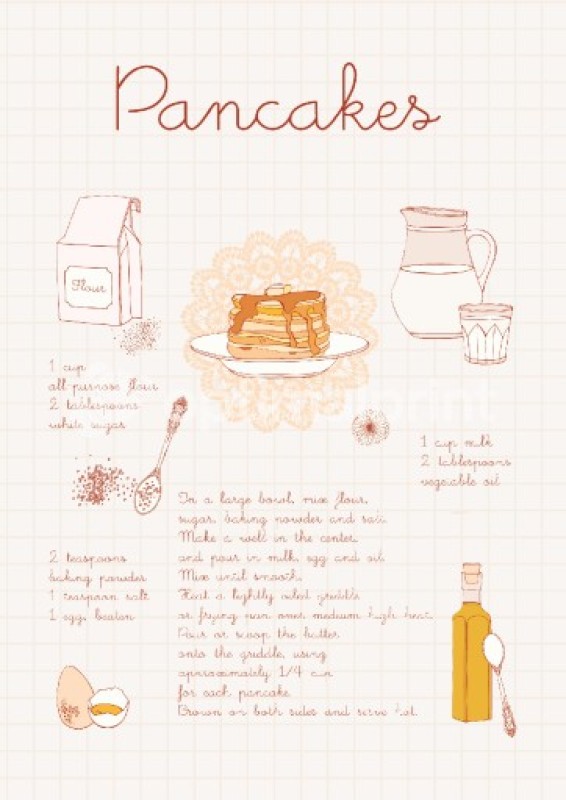 Pancakes
Flour
1 cup
all-purpose flour
2 tablespoons
white sugar
1 cup milk
2 tablespoons
vegetable oil
2 teaspoons
baking powder
1 teaspoon salt
1 egg, beaten
In a large bowl, mix flour,
sugar, baking powder and salt.
Make a well in the center,
and pour in milk, egg and oil
Mix until smooth.
Heat a lightly oiled griddle
or frying pan over medium high heat.
Pour or scoop the batter
onto the griddle, using
approximately 1/4 cup
for each pancake
Brown on both sides and serve hot.